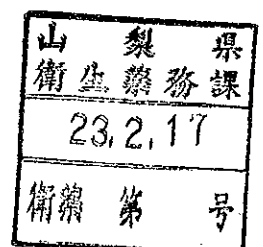 山梨県
衛生薬務課
23.2.17
衛薬 第 号